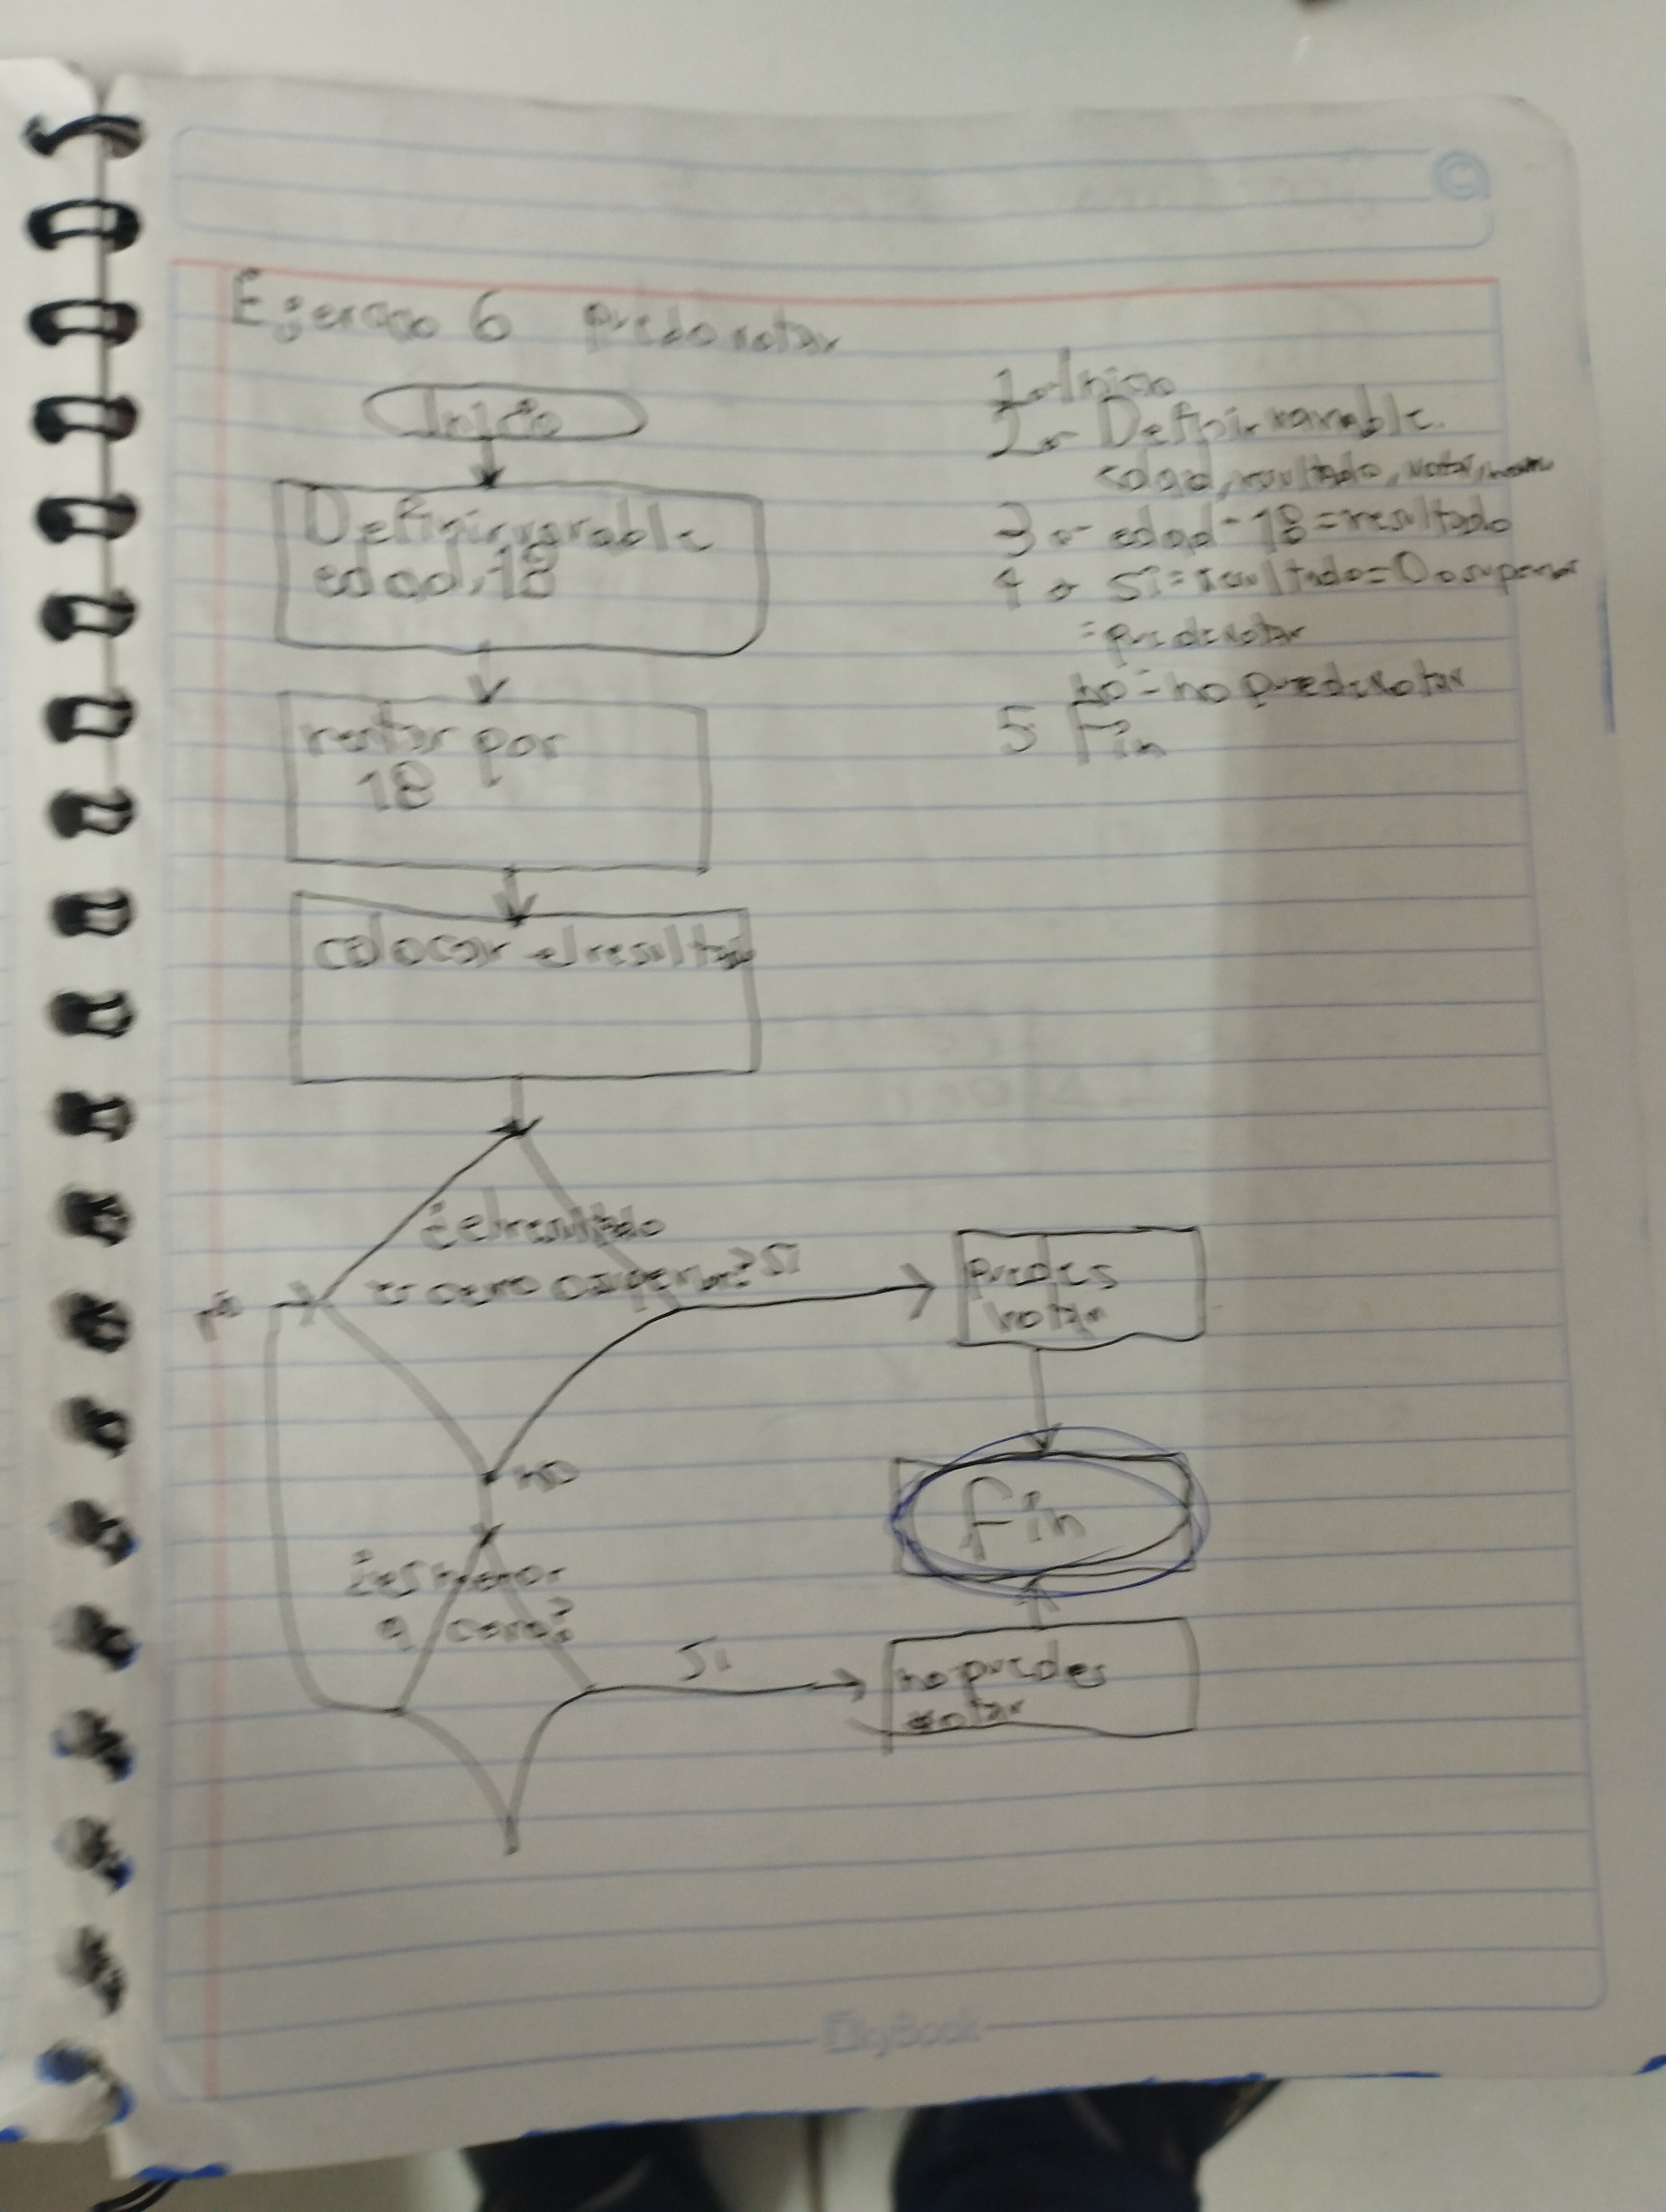 Ejercicio 6 puedo votar
Inicio
Definir variable
edad, 18
restar por
18
colocar el resultado
¿el resultado
es cero o superior? si
no
¿es menor
a cero?
si
puedes
votar
fin
no puedes
votar
1.- Inicio
2.- Definir variable.
edad, resultado, votar,
3.- edad - 18 = resultado
4.- si = resultado = 0 o superior
= puede votar
no = no puede votar
5 Fin
SkyBook